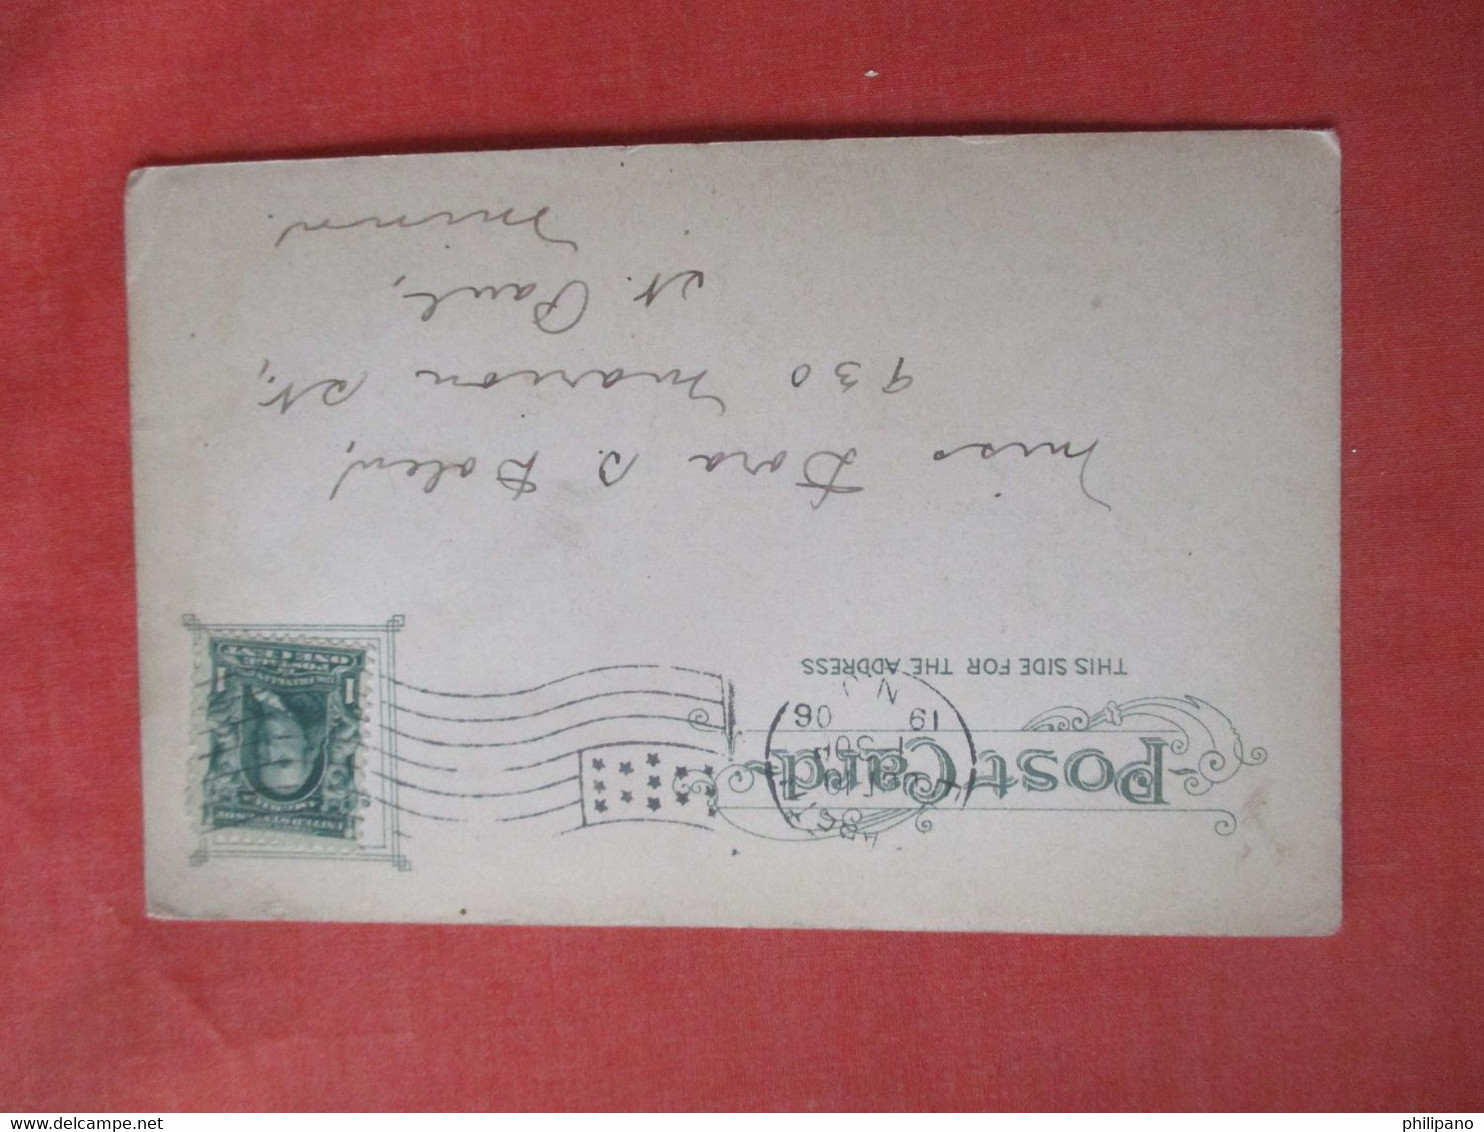 Post Card
THIS SIDE FOR THE ADDRESS
19 06
N.J.
UNITED STATES OF
AMERICA
1 1
POSTAGE
ONE CENT
Miss Dora B.
930 Marion St.,
St. Paul,
Minn
www.delcampe.net
philipano